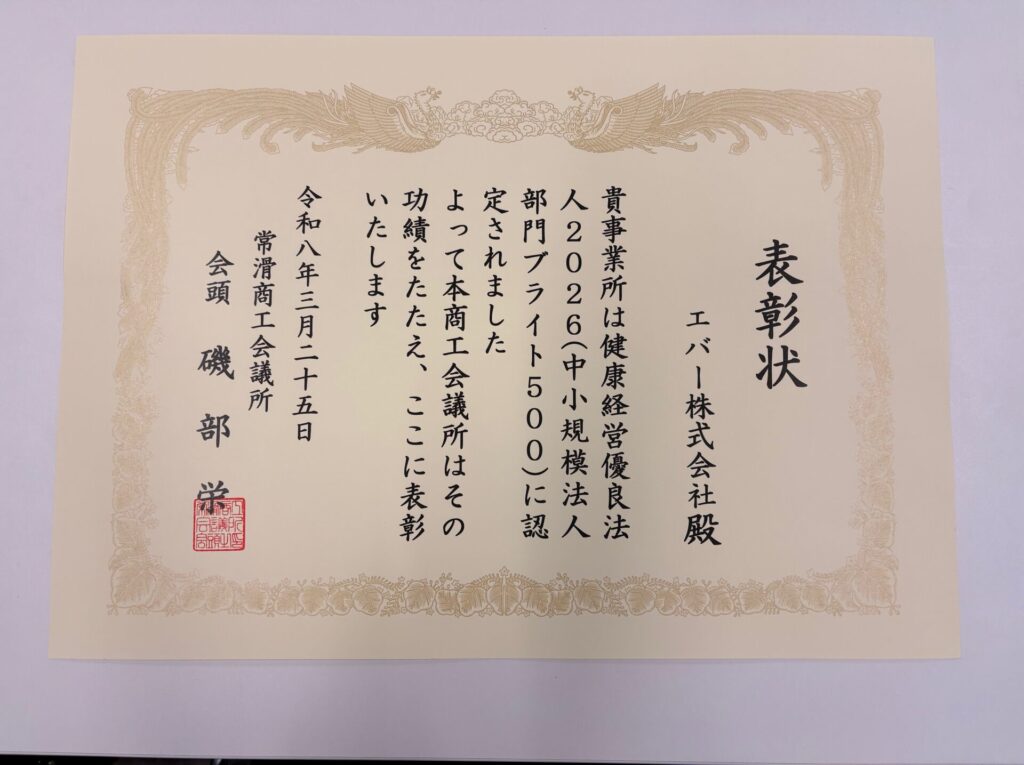 表彰状
エバー株式会社殿
貴事業所は健康経営優良法
人2026(中小規模法人
部門ブライト500)に認
定されました
よって本商工会議所はその
功績をたたえ、ここに表彰
いたします
令和八年三月二十五日
常滑商工会議所
会頭 磯部栄